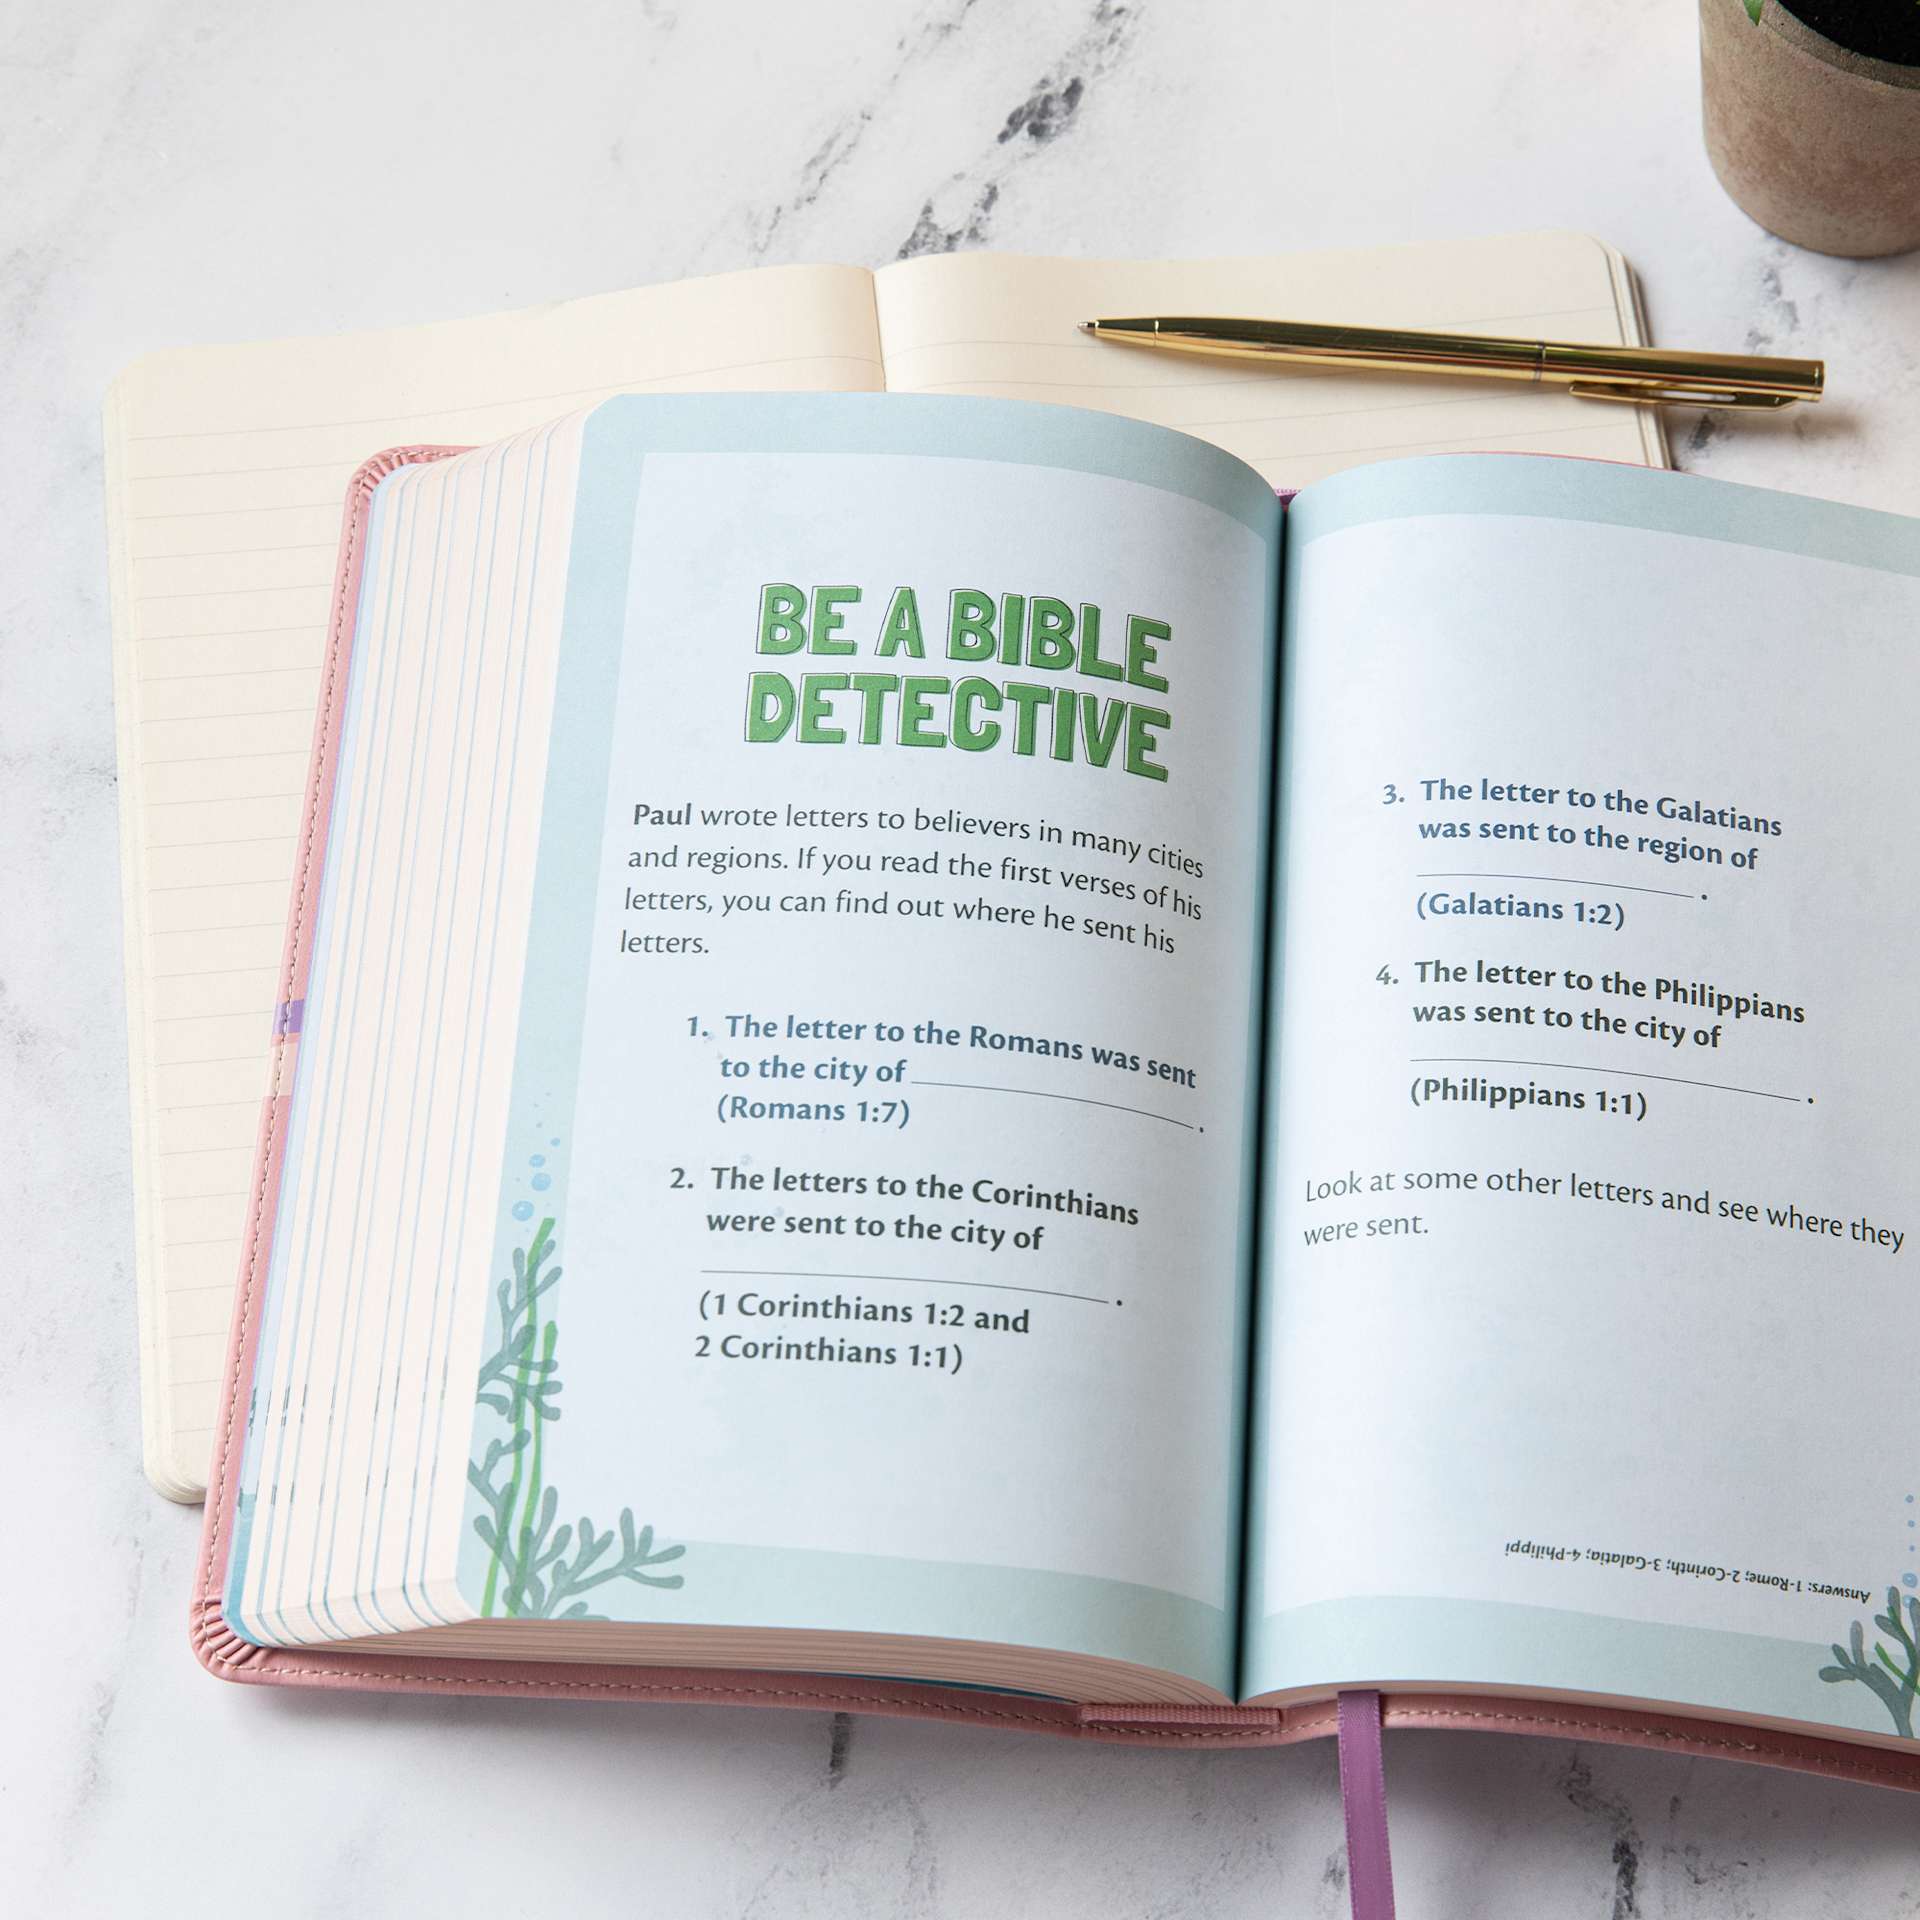 BE A BIBLE
DETECTIVE
Paul wrote letters to believers in many cities
and regions. If you read the first verses of his
letters, you can find out where he sent his
letters.
1. The letter to the Romans was sent
to the city of ____________________.
(Romans 1:7)
2. The letters to the Corinthians
were sent to the city of
____________________.
(1 Corinthians 1:2 and
2 Corinthians 1:1)
3. The letter to the Galatians
was sent to the region of
____________________.
(Galatians 1:2)
4. The letter to the Philippians
was sent to the city of
____________________.
(Philippians 1:1)
Look at some other letters and see where they
were sent.
Answers: 1-Rome; 2-Corinth; 3-Galatia; 4-Philippi